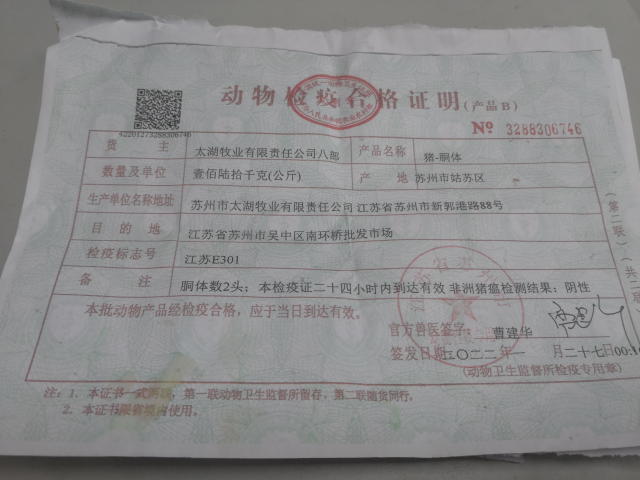 动物检疫合格证明(产品B)
42201273288306746
№ 3288306746
货 主 太湖牧业有限责任公司八部 产品名称 猪-胴体
数量及单位 壹佰陆拾千克(公斤) 产 地 苏州市姑苏区
生产单位名称地址 苏州市太湖牧业有限责任公司 江苏省苏州市新郭港路88号
目 的 地 江苏省苏州市吴中区南环桥批发市场
检疫标志号 江苏E301
备 注 胴体数2头; 本检疫证二十四小时内到达有效 非洲猪瘟检测结果: 阴性
本批动物产品经检疫合格,应于当日到达有效。
官方兽医签字: 曹建华
签发日期: 二〇二二年一月二十七日
(动物卫生监督所检疫专用章)
注: 1. 本证书一式两联,第一联动物卫生监督所留存,第二联随货同行。
2. 本证书限省境内使用。
(第二联)
(共二联)